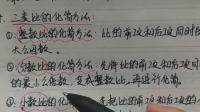 三、比的化简方法:
①整数比的化简方法:比的前项和后项同时除以
大公因数。
②分数比的化简方法:先将比的前项和后项
的最小公倍数,变成整数比,再进行化简。
③小数比的化简方法:先把比的前项和后项的